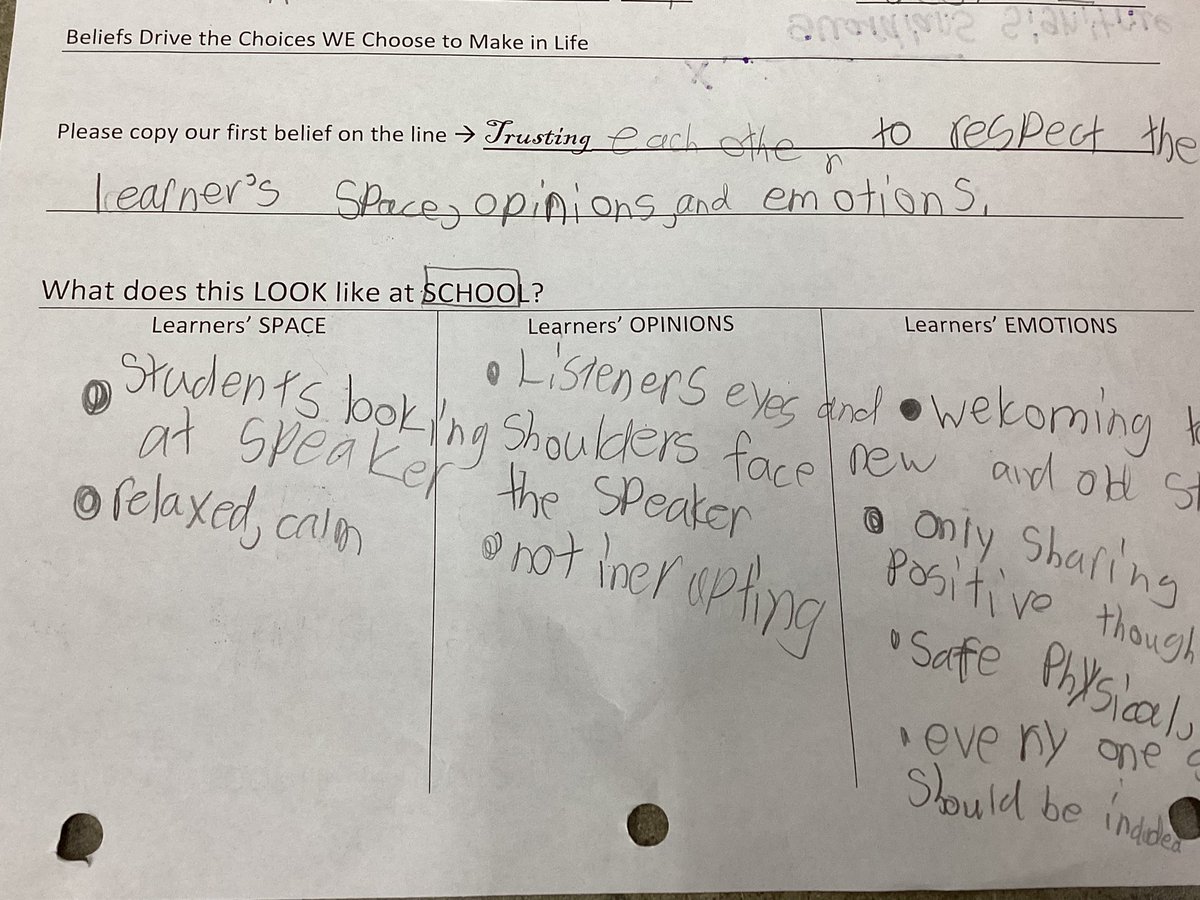 Beliefs Drive the Choices WE Choose to Make in Life
Please copy our first belief on the line → Trusting each other to respect the
learner's space, opinions, and emotions.
What does this LOOK like at SCHOOL?
Learners' SPACE
Students looking
at speaker
relaxed, calm
Learners' OPINIONS
Listeners eyes and
shoulders face
the speaker
not inerupting
Learners' EMOTIONS
welcoming
new and old
only sharing
positive
safe physical,
everny one
should be included